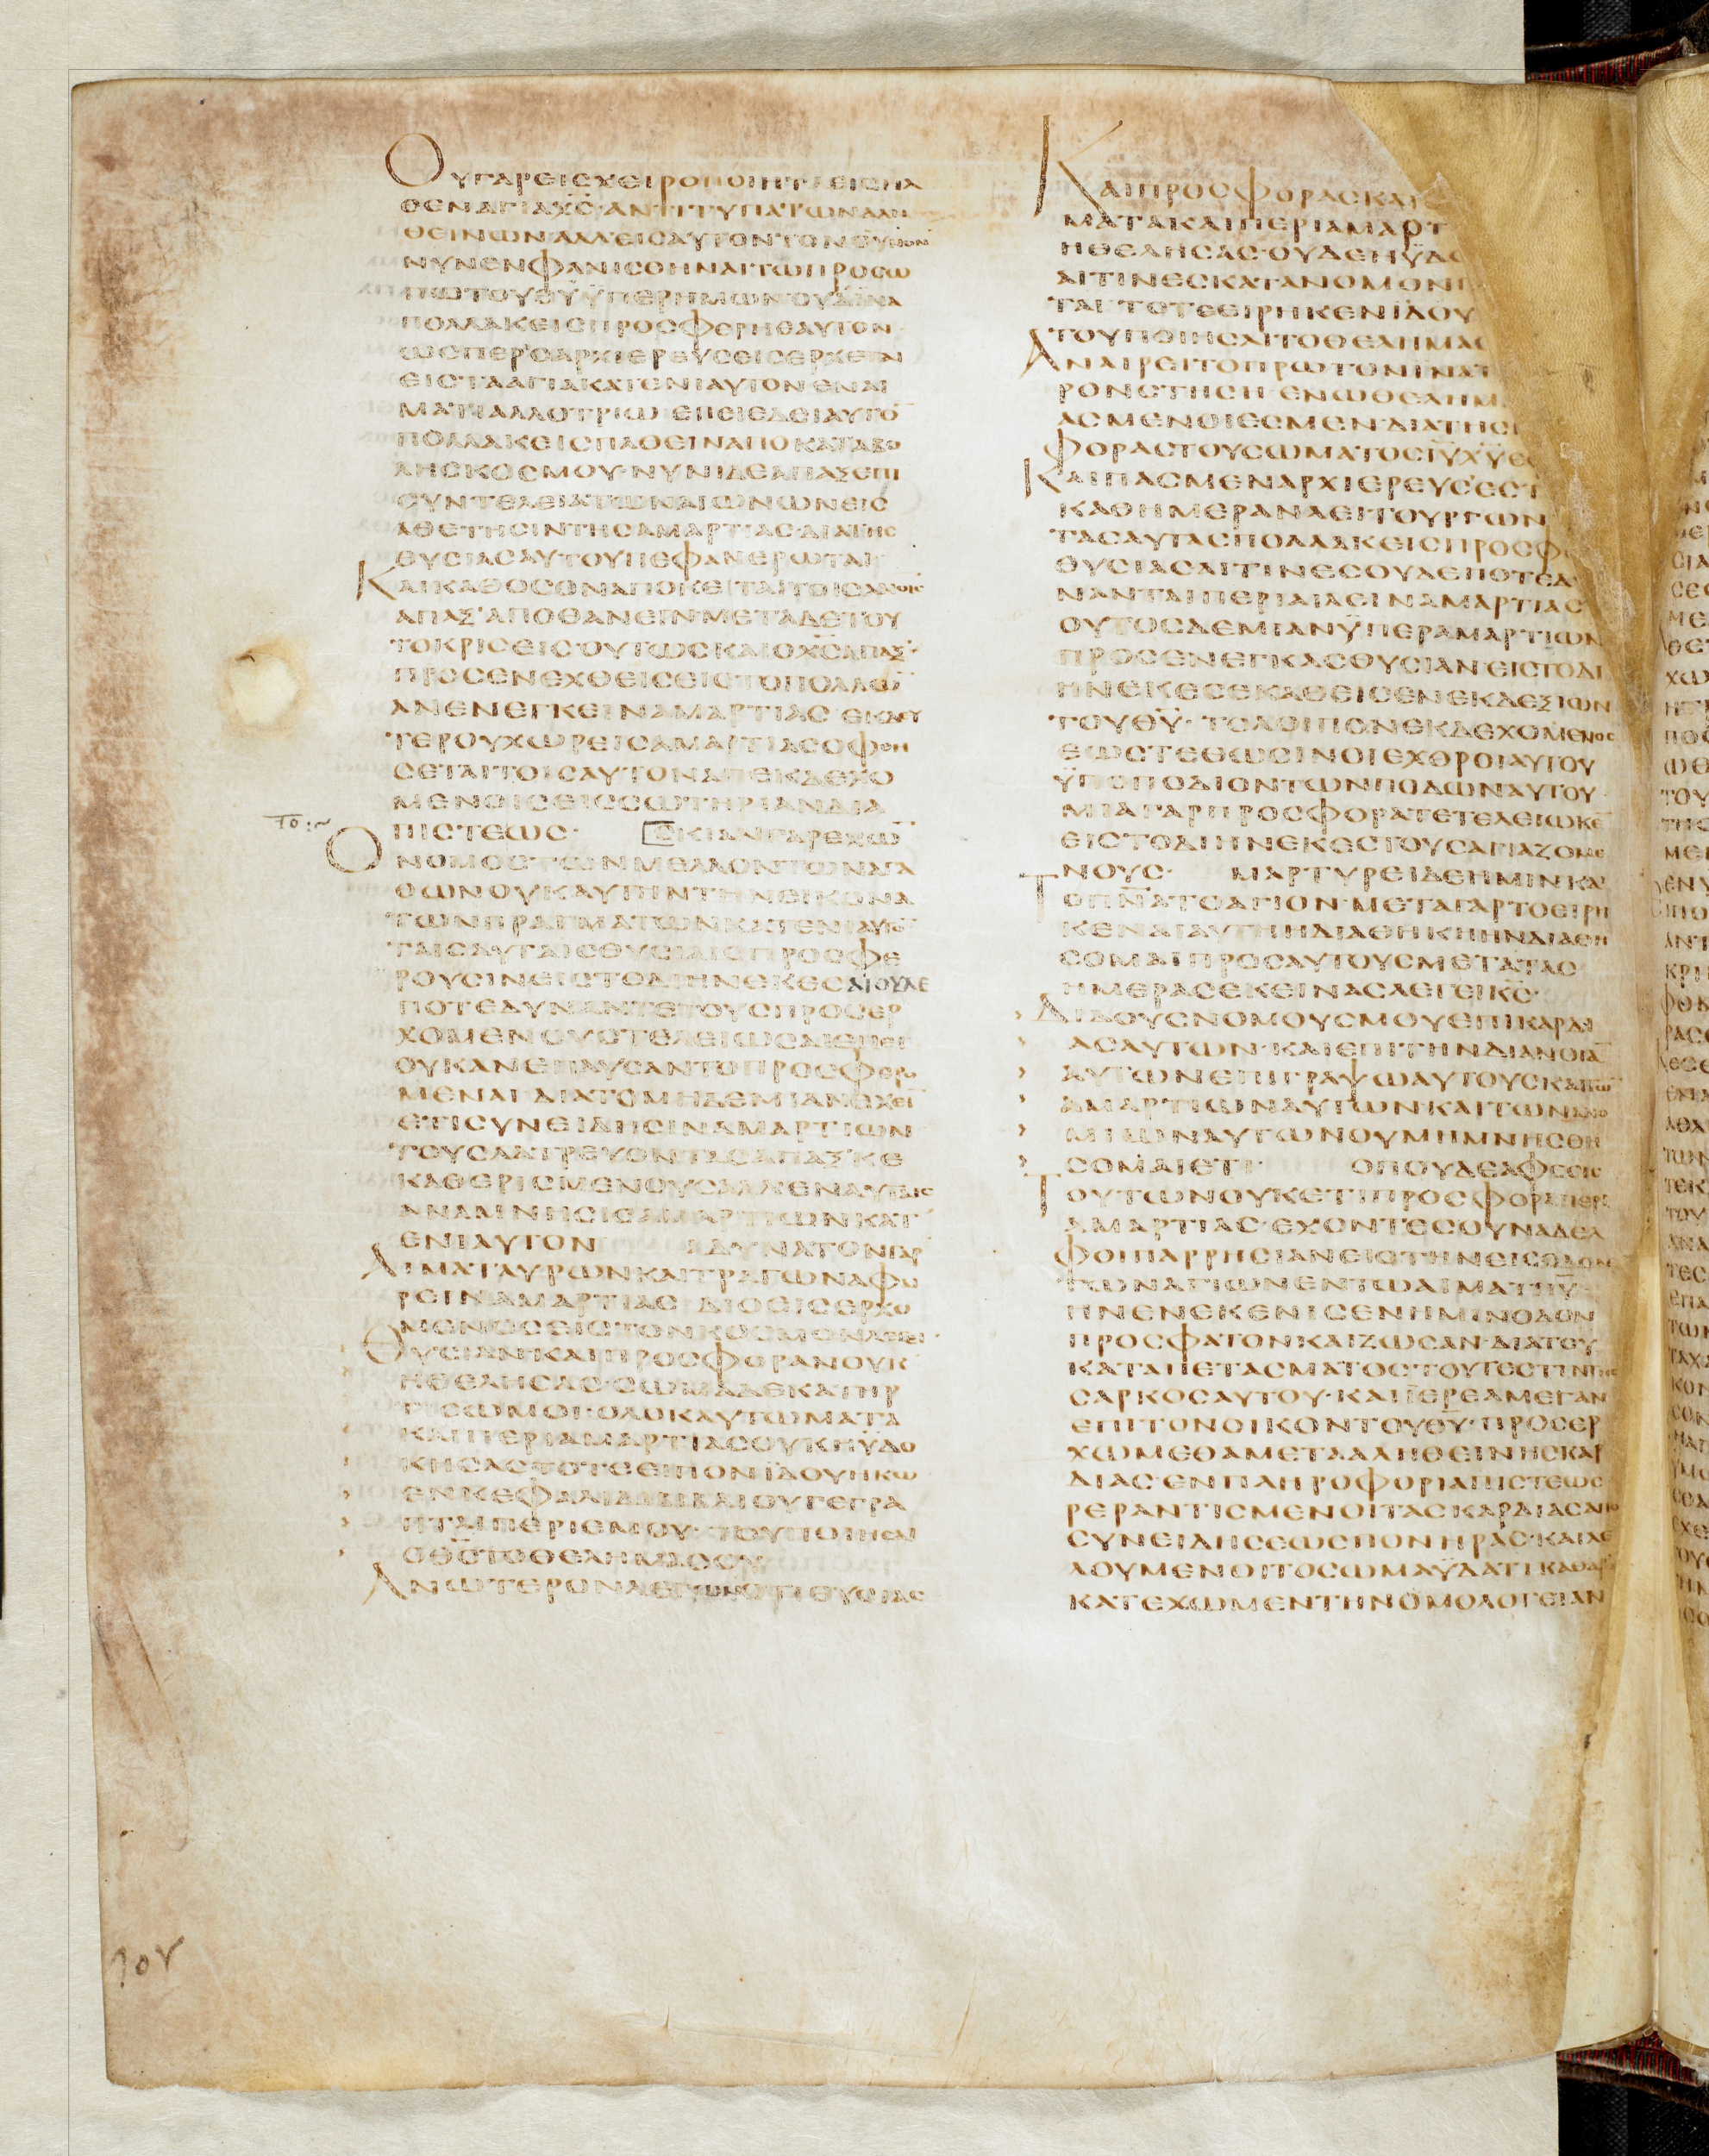 ΟΥΓΑΡΕΙϹΧΕΙΡΟΠΟΙΗΤΑΕΙϹΗΛ
ΘΕΝΑΓΙΑΧϹ·ΑΝΤΙΤΥΠΑΤΩΝΑΛΗ
ΘΕΙΝΩΝΑΛΛΕΙϹΑΥΤΟΝΤΟΝΟΥΝΟΝ
ΝΥΝΕΝΦΑΝΙϹΘΗΝΑΙΤΩΠΡΟϹΩ
ΠΩΤΟΥΘΥΫΠΕΡΗΜΩΝΟΥΔΪΝΑ
ΠΟΛΛΑΚΕΙϹΠΡΟϹΦΕΡΗΕΑΥΤΟΝ
ΩϹΠΕΡΟΑΡΧΙΕΡΕΥϹΕΙϹΕΡΧΕΤΑΙ
ΕΙϹΤΑΑΓΙΑΚΑΤΕΝΙΑΥΤΟΝΕΝΑΙ
ΜΑΤΙΑΛΛΟΤΡΙΩ ΕΠΕΙΕΔΕΙΑΥΤΟ
ΠΟΛΛΑΚΕΙϹΠΑΘΕΙΝΑΠΟΚΑΤΑΒΟ
ΛΗϹΚΟϹΜΟΥ·ΝΥΝΙΔΕΑΠΑΞΕΠΙ
ϹΥΝΤΕΛΕΙΑΤΩΝΑΙΩΝΩΝΕΙϹ
ΑΘΕΤΗϹΙΝΤΗϹΑΜΑΡΤΙΑϹ·ΔΙΑΤΗϹ
ΘΥϹΙΑϹΑΥΤΟΥΠΕΦΑΝΕΡΩΤΑΙ
ΚΑΙΚΑΘΟϹΟΝΑΠΟΚΕΙΤΑΙΤΟΙϹΑΝΟΙϹ
ΑΠΑΞΑΠΟΘΑΝΕΙΝ·ΜΕΤΑΔΕΤΟΥ
ΤΟΚΡΙϹΕΙϹ·ΟΥΤΩϹΚΑΙΟΧϹΑΠΑΞ·
ΠΡΟϹΕΝΕΧΘΕΙϹΕΙϹΤΟΠΟΛΛΩ
ΑΝΕΝΕΓΚΕΙΝΑΜΑΡΤΙΑϹ ΕΚΔΕΥ
ΤΕΡΟΥΧΩΡΕΙϹΑΜΑΡΤΙΑϹΟΦΘΗ
ϹΕΤΑΙΤΟΙϹΑΥΤΟΝΑΠΕΚΔΕΧΟ
ΜΕΝΟΙϹΕΙϹϹΩΤΗΡΙΑΝΔΙΑ
ΠΙϹΤΕΩϹ· ϹΚΙΑΝΓΑΡΕΧΩ
ΤΟ:~
ΟΝΟΜΟϹΤΩΝΜΕΛΛΟΝΤΩΝΑΓΑ
ΘΩΝΟΥΚΑΥΤΗΝΤΗΝΕΙΚΟΝΑ
ΤΩΝΠΡΑΓΜΑΤΩΝΚΑΤΕΝΙΑΥΤΟ
ΤΑΙϹΑΥΤΑΙϹΘΥϹΙΑΙϹΠΡΟϹΦΕ
ΡΟΥϹΙΝΕΙϹΤΟΔΙΗΝΕΚΕϹΑΙΟΥΔΕ
ΠΟΤΕΔΥΝΑΝΤΕΤΟΥϹΠΡΟϹΕΡ
ΧΟΜΕΝΟΥϹΤΕΛΕΙΩϹΑΙΕΠΕΙ
ΟΥΚΑΝΕΠΑΥϹΑΝΤΟΠΡΟϹΦΕΡΟ
ΜΕΝΑΙ ΔΙΑΤΟΜΗΔΕΜΙΑΝΕΧΕΙ
ΕΤΙϹΥΝΕΙΔΗϹΙΝΑΜΑΡΤΙΩΝ
ΤΟΥϹΛΑΤΡΕΥΟΝΤΑϹΑΠΑΞΚΕ
ΚΑΘΕΡΙϹΜΕΝΟΥϹΑΛΛΕΝΑΥΤΑΙϹ
ΑΝΑΜΝΗϹΙϹΑΜΑΡΤΙΩΝΚΑΤ
ΕΝΙΑΥΤΟΝ ΑΔΥΝΑΤΟΝΓΑΡ
ΑΙΜΑΤΑΥΡΩΝΚΑΙΤΡΑΓΩΝΑΦΕ
ΡΕΙΝΑΜΑΡΤΙΑϹ ΔΙΟΕΙϹΕΡΧΟ
ΜΕΝΟϹΕΙϹΤΟΝΚΟϹΜΟΝΛΕΓΕΙ
ΘΥϹΙΑΝΚΑΙΠΡΟϹΦΟΡΑΝΟΥΚ
ΗΘΕΛΗϹΑϹ·ϹΩΜΑΔΕΚΑΤΗΡ
ΤΙϹΩΜΟΙ·ΟΛΟΚΑΥΤΩΜΑΤΑ
ΚΑΙΠΕΡΙΑΜΑΡΤΙΑϹΟΥΚΗΫΔΟ
ΚΗϹΑϹΤΟΤΕΕΙΠΟΝΪΔΟΥΗΚΩ
ΕΝΚΕΦΑΛΙΔΙΒΙΒΛΙΟΥΓΕΓΡΑ
ΠΤΑΙΠΕΡΙΕΜΟΥ·ΤΟΥΠΟΙΗϹΑΙ
ΟΘϹΤΟΘΕΛΗΜΑϹΟΥ
ΑΝΩΤΕΡΟΝΛΕΓΩΝΟΤΙΘΥϹΙΑϹ
ΚΑΙΠΡΟϹΦΟΡΑϹΚΑΙ
ΜΑΤΑΚΑΙΠΕΡΙΑΜΑΡΤ
ΗΘΕΛΗϹΑϹ·ΟΥΔΕΗΫΔΟ
ΑΙΤΙΝΕϹΚΑΤΑΝΟΜΟΝ
ΤΑΙ·ΤΟΤΕΕΙΡΗΚΕΝΪΔΟΥ
ΤΟΥΠΟΙΗϹΑΙΤΟΘΕΛΗΜΑϹ
ΑΝΑΙΡΕΙΤΟΠΡΩΤΟΝΙΝΑΤ
ΡΟΝϹΤΗϹΗ ΕΝΩΘΕΛΗΜ
ΑϹΜΕΝΟΙΕϹΜΕΝΔΙΑΤΗϹ
ΦΟΡΑϹΤΟΥϹΩΜΑΤΟϹΙΥΧΥΕ
ΚΑΙΠΑϹΜΕΝΑΡΧΙΕΡΕΥϹΕϹΤ
ΚΑΘΗΜΕΡΑΝΛΕΙΤΟΥΡΓΩΝ
ΤΑϹΑΥΤΑϹΠΟΛΛΑΚΕΙϹΠΡΟϹΦ
ΘΥϹΙΑϹΑΙΤΙΝΕϹΟΥΔΕΠΟΤΕΔΥ
ΝΑΝΤΑΙΠΕΡΙΑΙΑΕΙΝΑΜΑΡΤΙΑϹ
ΟΥΤΟϹΔΕΜΙΑΝΫΠΕΡΑΜΑΡΤΙΩΝ
ΠΡΟϹΕΝΕΓΚΑϹΘΥϹΙΑΝ·ΕΙϹΤΟΔΙ
ΗΝΕΚΕϹΕΚΑΘΕΙϹΕΝΕΚΔΕΞΙΩΝ
ΤΟΥΘΥ· ΤΟΛΟΙΠΟΝΕΚΔΕΧΟΜΕΝΟϹ
ΕΩϹΤΕΘΩϹΙΝΟΙΕΧΘΡΟΙΑΥΤΟΥ
ΫΠΟΠΟΔΙΟΝΤΩΝΠΟΔΩΝΑΥΤΟΥ
ΜΙΑΓΑΡΠΡΟϹΦΟΡΑΤΕΤΕΛΕΙΩΚΕ
ΕΙϹΤΟΔΙΗΝΕΚΕϹΤΟΥϹΑΓΙΑΖΟΜΕ
ΝΟΥϹ· ΜΑΡΤΥΡΕΙΔΕΗΜΙΝΚΑΙ
ΤΟΠΝΑΤΟΑΓΙΟΝ·ΜΕΤΑΓΑΡΤΟΕΙΡΗ
ΚΕΝΑΙΑΥΤΗΗΔΙΑΘΗΚΗΗΝΔΙΑΘΗ
ϹΟΜΑΙΠΡΟϹΑΥΤΟΥϹΜΕΤΑΤΑϹ
ΗΜΕΡΑϹΕΚΕΙΝΑϹΛΕΓΕΙΚϹ·
ΔΙΔΟΥϹΝΟΜΟΥϹΜΟΥΕΠΙΚΑΡΔΙ
ΑϹΑΥΤΩΝ·ΚΑΙΕΠΙΤΗΝΔΙΑΝΟΙΑ
ΑΥΤΩΝΕΠΙΓΡΑΨΩΑΥΤΟΥϹΚΑΙΤΩ
ΑΜΑΡΤΙΩΝΑΥΤΩΝ·ΚΑΙΤΩΝΑΝΟ
ΜΙΩΝΑΥΤΩΝΟΥΜΗΜΝΗϹΘΗ
ϹΟΜΑΙΕΤΙ· ΟΠΟΥΔΕΑΦΕϹΙϹ
ΤΟΥΤΩΝΟΥΚΕΤΙΠΡΟϹΦΟΡΑΠΕΡΙ
ΑΜΑΡΤΙΑϹ·ΕΧΟΝΤΕϹΟΥΝΑΔΕΛ
ΦΟΙΠΑΡΡΗϹΙΑΝΕΙϹΤΗΝΕΙϹΟΔΟΝ
ΤΩΝΑΓΙΩΝΕΝΤΩΑΙΜΑΤΙΙΥ
ΗΝΕΝΕΚΕΝΙϹΕΝΗΜΙΝΟΔΟΝ
ΠΡΟϹΦΑΤΟΝΚΑΙΖΩϹΑΝ·ΔΙΑΤΟΥ
ΚΑΤΑΠΕΤΑϹΜΑΤΟϹ·ΤΟΥΤΕϹΤΙΝΤΗϹ
ϹΑΡΚΟϹΑΥΤΟΥ·ΚΑΙΪΕΡΕΑΜΕΓΑΝ
ΕΠΙΤΟΝΟΙΚΟΝΤΟΥΘΥ·ΠΡΟϹΕΡ
ΧΩΜΕΘΑΜΕΤΑΑΛΗΘΕΙΝΗϹΚΑΡ
ΔΙΑϹ·ΕΝΠΛΗΡΟΦΟΡΙΑΠΙϹΤΕΩϹ
ΡΕΡΑΝΤΙϹΜΕΝΟΙΤΑϹΚΑΡΔΙΑϹΑΠΟ
ϹΥΝΕΙΔΗϹΕΩϹΠΟΝΗΡΑϹ·ΚΑΙΛΕ
ΛΟΥΜΕΝΟΙΤΟϹΩΜΑΫΔΑΤΙΚΑΘΑΡΩ
ΚΑΤΕΧΩΜΕΝΤΗΝΟΜΟΛΟΓΕΙΑΝ